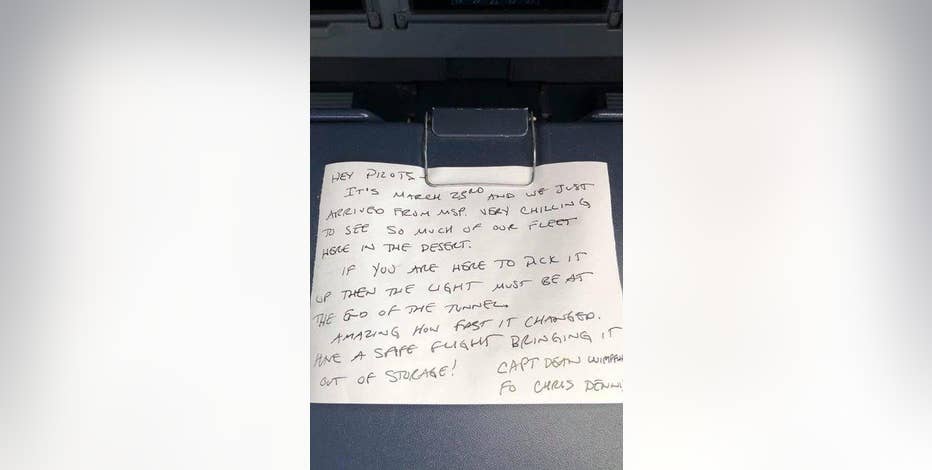 HEY PILOTS -
IT'S MARCH 23RD AND WE JUST
ARRIVED FROM MSP. VERY CHILLING
TO SEE SO MUCH OF OUR FLEET
HERE IN THE DESERT.
IF YOU ARE HERE TO PICK IT
UP THEN THE LIGHT MUST BE AT
THE END OF THE TUNNEL.
AMAZING HOW FAST IT CHANGED.
HAVE A SAFE FLIGHT BRINGING IT
OUT OF STORAGE! CAPT DEAN
FO CHRIS